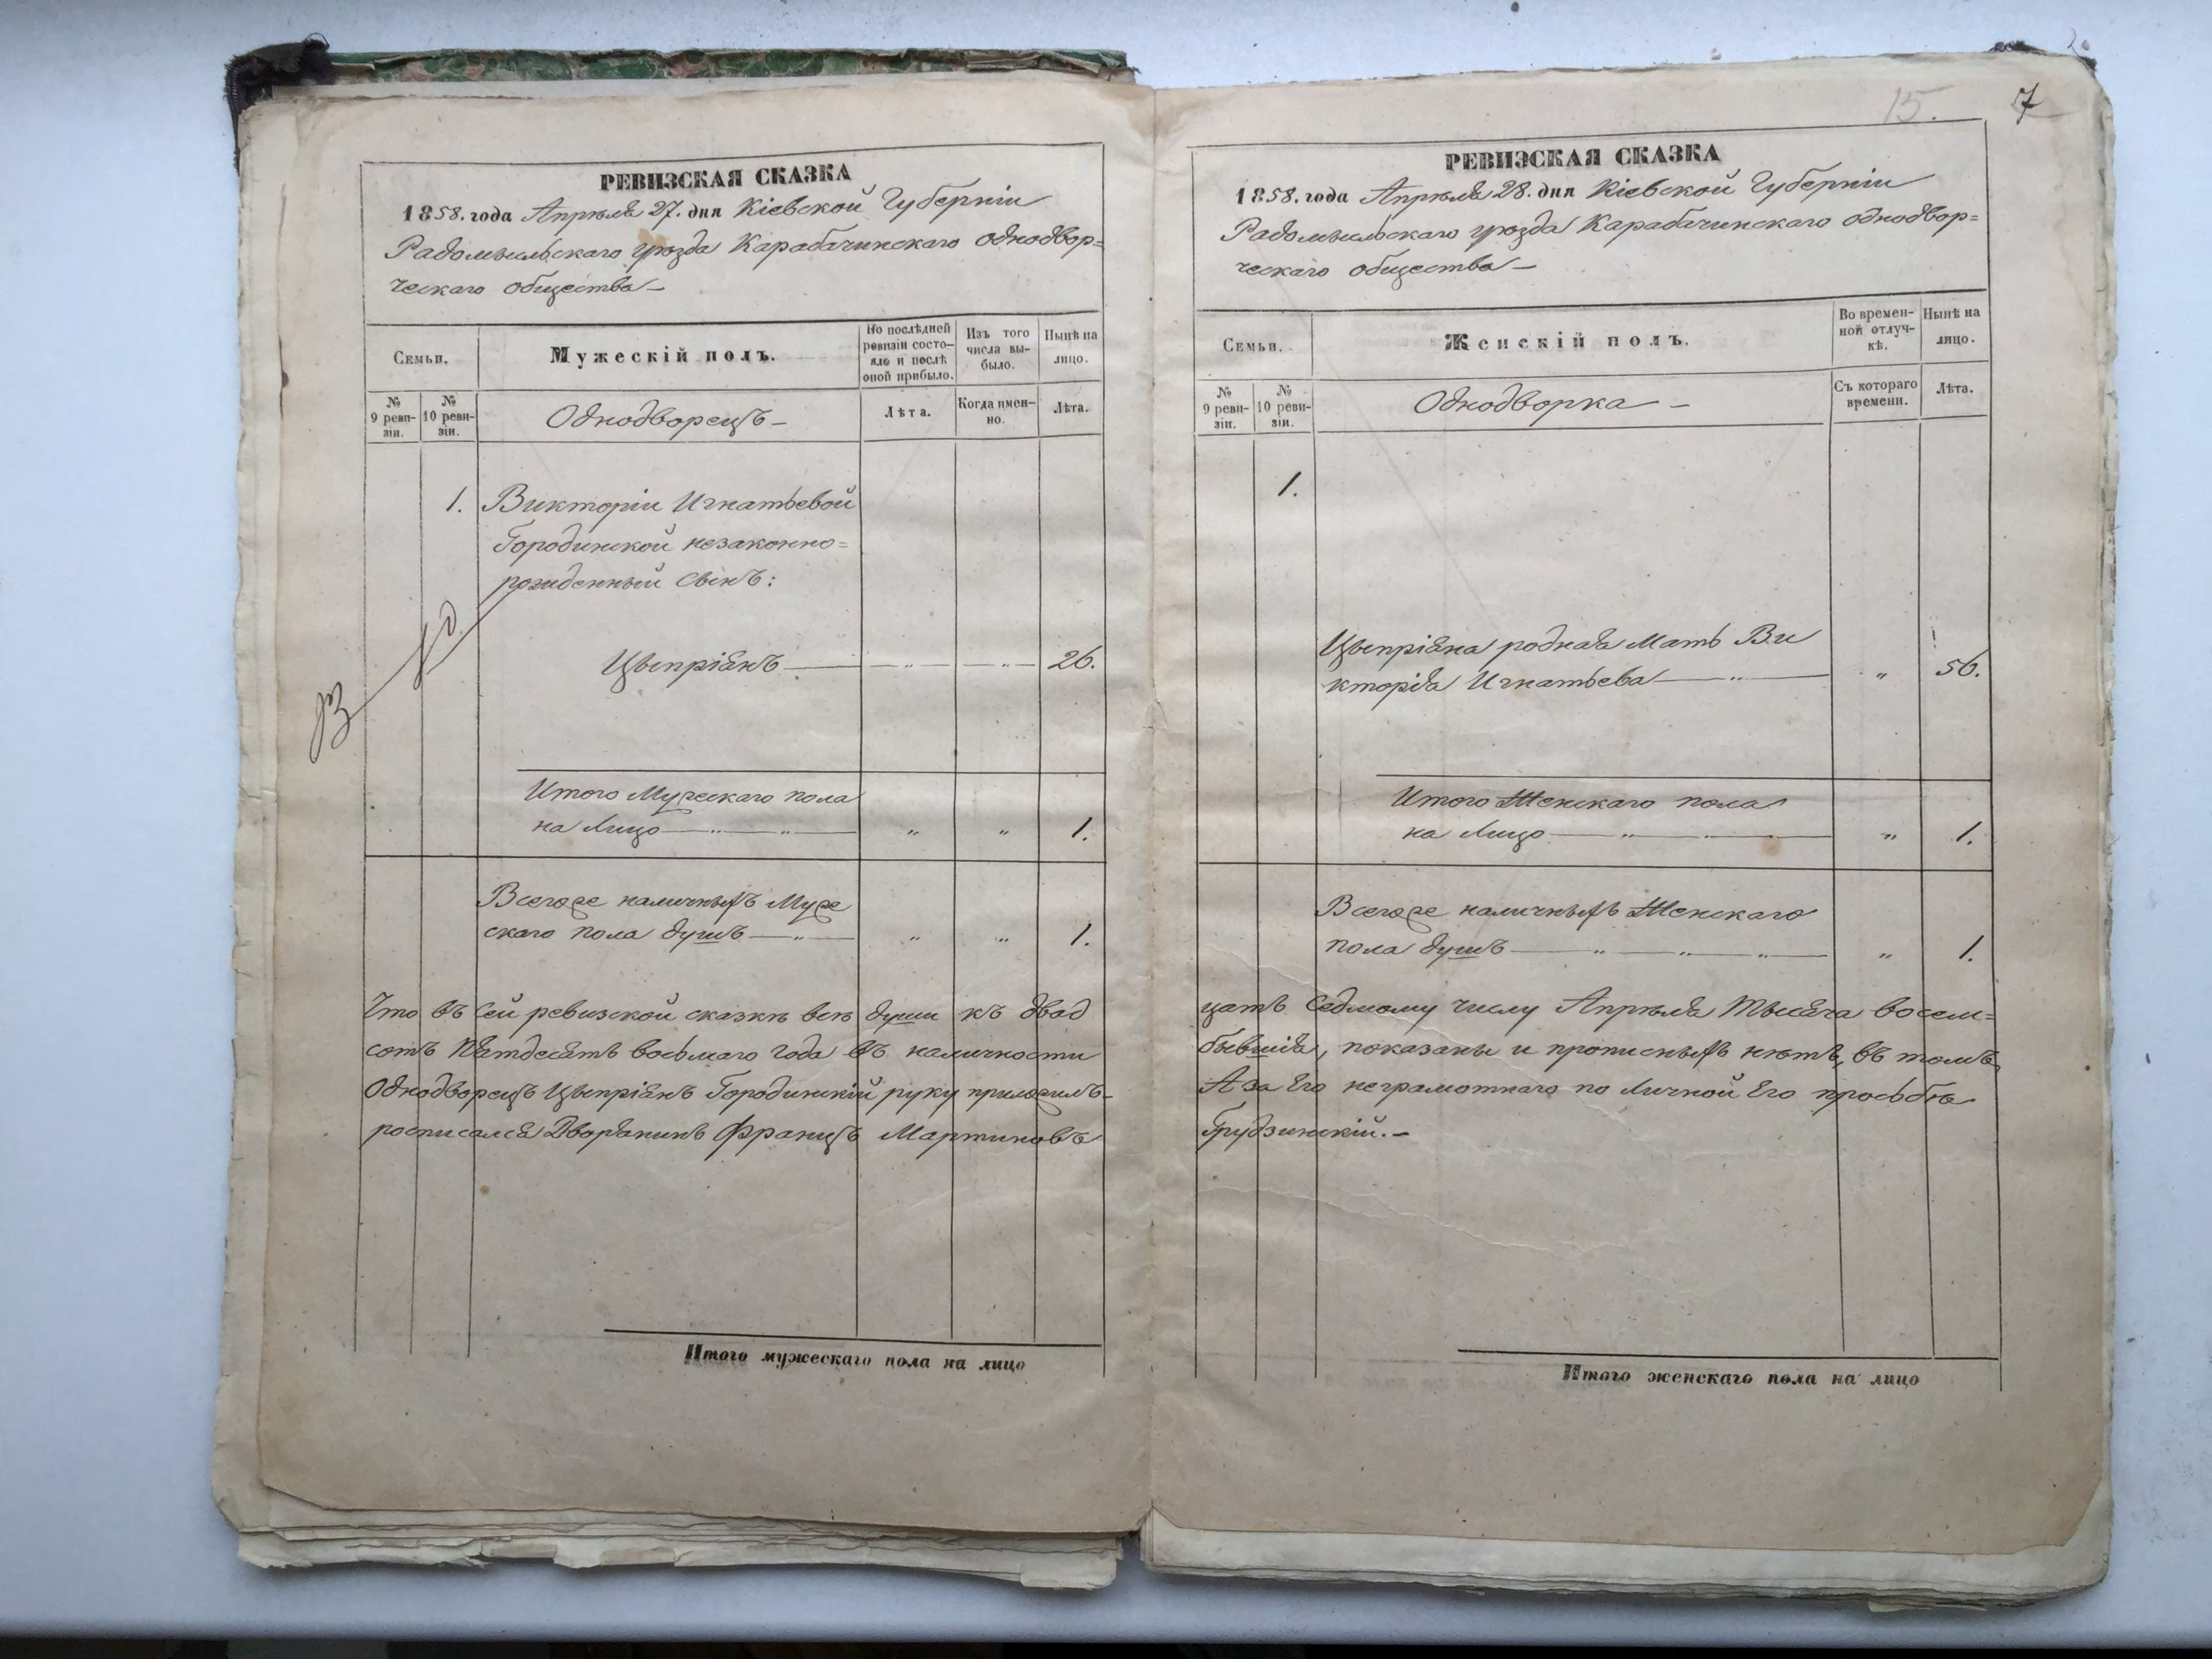 РЕВИЗСКАЯ СКАЗКА
1858. года Апрѣля 27. дня Кіевской Губерніи
Радомысльскаго уѣзда Карабачинскаго однодвор=
ческаго общества –
Семьи.
Мужескій полъ.
По послѣдней ревизіи состояло и послѣ оной прибыло.
Изъ того числа выбыло.
Нынѣ на лицо.
№ 9 ревизіи.
№ 10 ревизіи.
Однодворецъ –
Лѣта.
Когда именно.
Лѣта.
1. Викторіи Игнатьевой
Городинской незаконно=
рожденный сынъ:
Цыпріянъ — „ — „ — 26.
Итого Мужескаго пола
на Лицо — „ — „ — „ „ 1.
Всегоже наличныхъ Муже
скаго пола душъ — „ — „ „ 1.
Что въ сей ревизской сказкѣ всѣ души къ двад
сотъ Пятдесятъ восьмаго года въ наличности
Однодворецъ Цыпріянъ Городинскій руку приложилъ –
росписался Дворянинъ Францъ Мартиновъ
Итого мужескаго пола на лицо
15. 7
РЕВИЗСКАЯ СКАЗКА
1858. года Апрѣля 28. дня Кіевской Губерніи
Радомысльскаго уѣзда Карабачинскаго однодвор=
ческаго общества –
Семьи.
Женскій полъ.
Во временной отлучкѣ.
Нынѣ на лицо.
№ 9 ревизіи.
№ 10 ревизіи.
Однодворка –
Съ котораго времени.
Лѣта.
1.
Цыпріяна родная Мать Ви
кторія Игнатьева — „ — „ 56.
Итого Женскаго пола
на Лицо — „ — „ — „ 1.
Всегоже наличныхъ Женскаго
пола душъ — „ — „ — „ — „ 1.
цать седмому числу Апрѣля Тысяча восем=
бывшія, показаны и прописныхъ нѣтъ, въ томъ
А за Его неграмотнаго по Личной Его просьбѣ
Грудзинскій. –
Итого женскаго пола на лицо